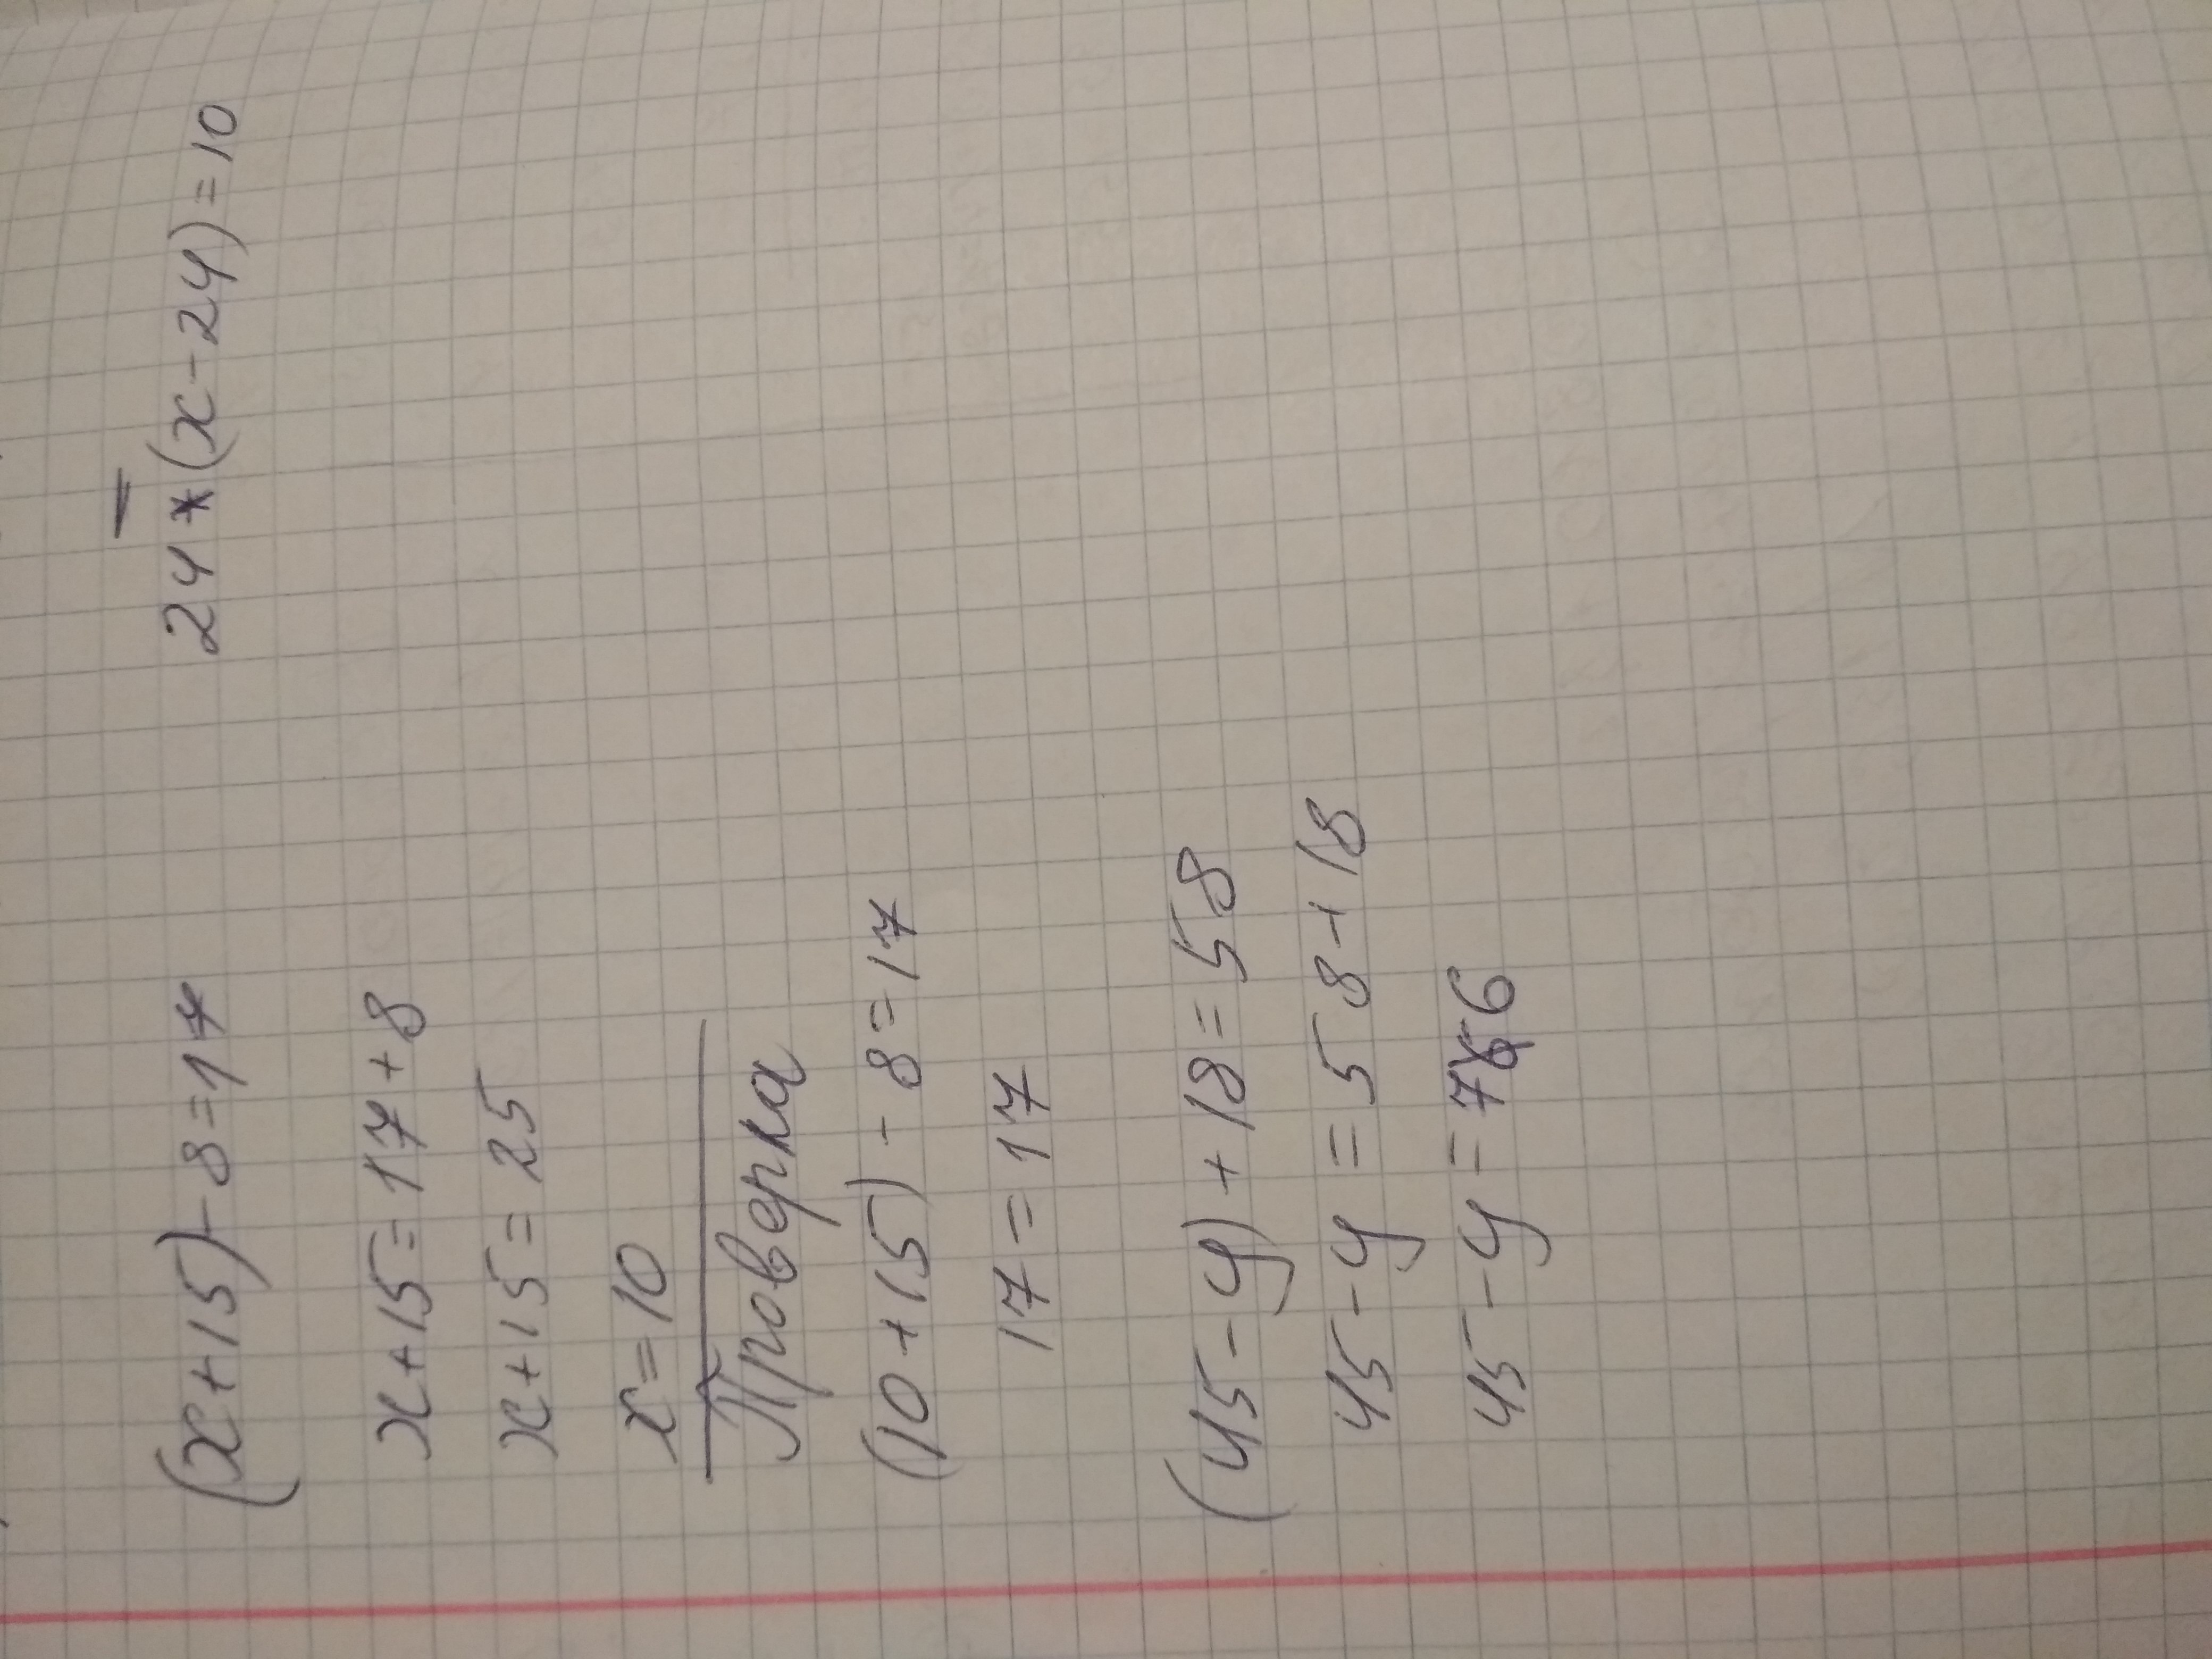 (x+15)-8=17
x+15=17+8
x+15=25
x=10
Проверка
(10+15)-8=17
17=17
(45-y)+18=58
45-y=58+18
45-y=76
24-(x-24)=10